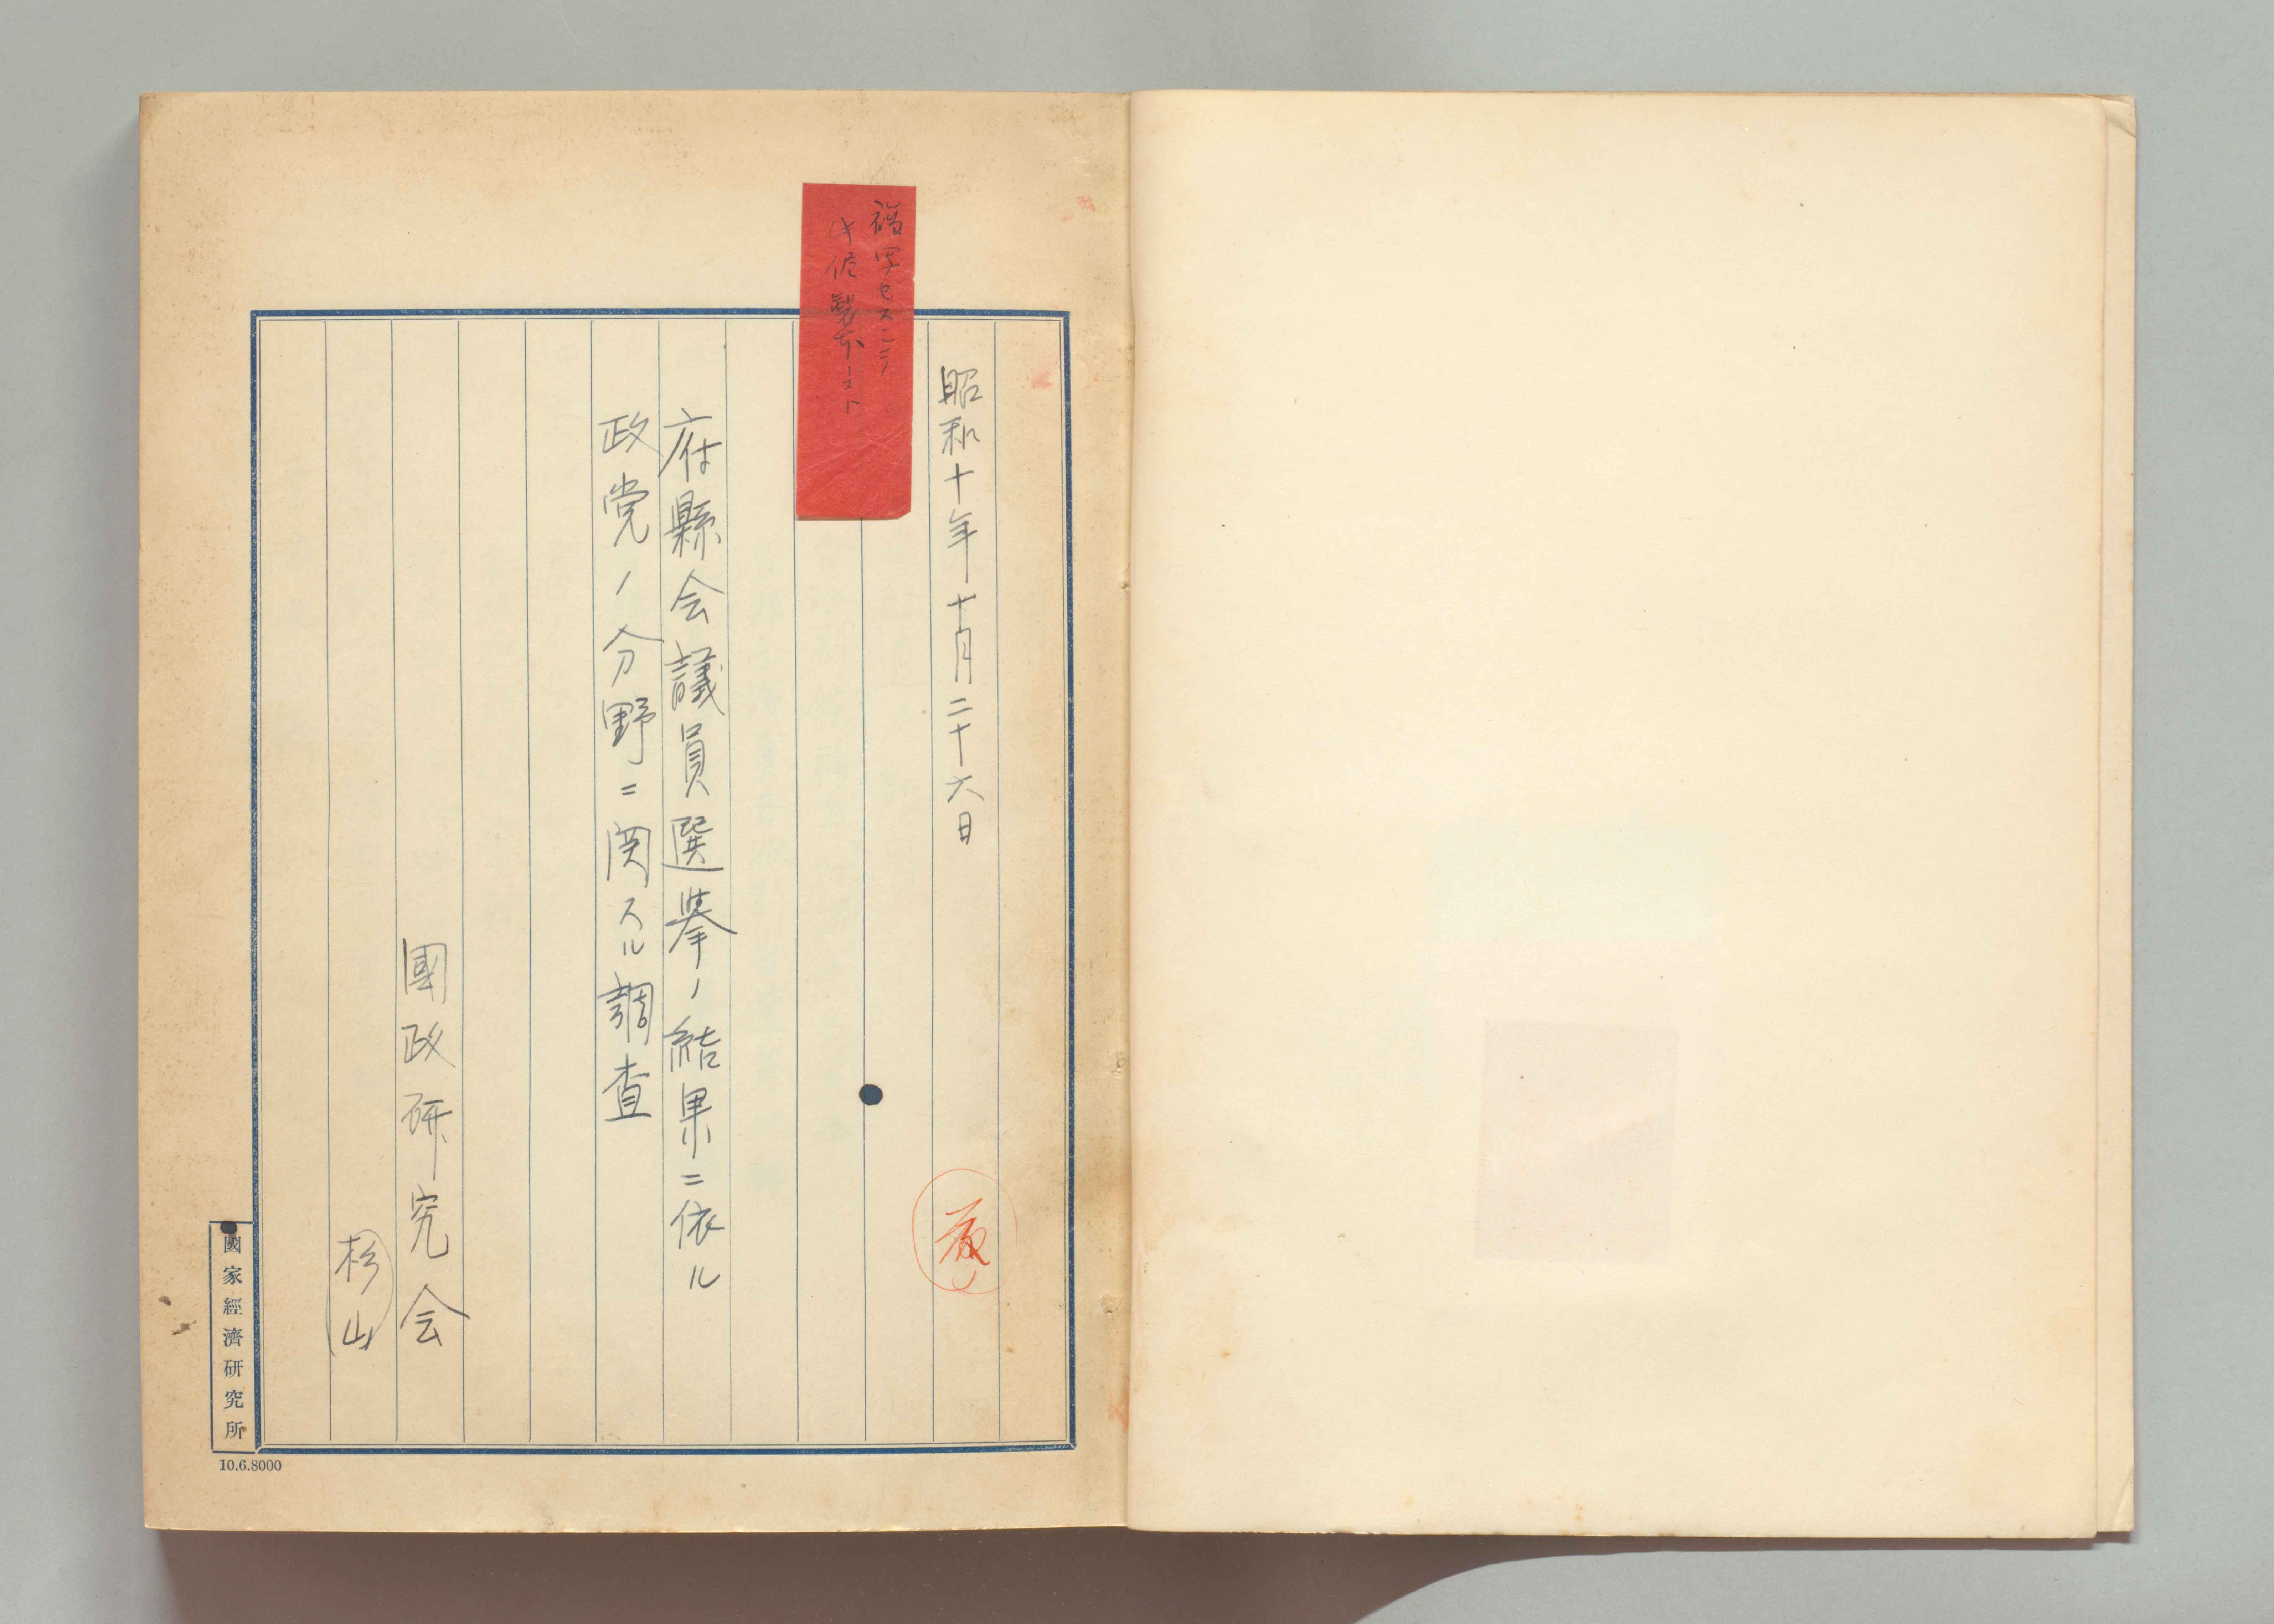 昭和十年十月二十六日
府縣会議員選挙ノ結果ニ依ル
政党ノ分野ニ関スル調査
國政研究会
杉山
國家經濟研究所
10.6.8000